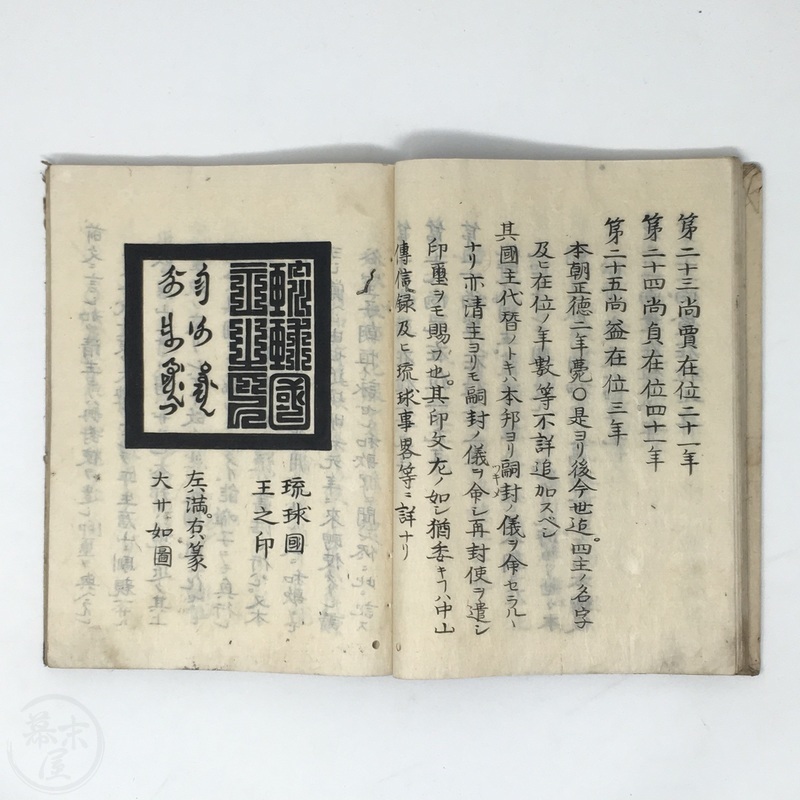 第二十三尚賈在位二十一年
第二十四尚貞在位四十一年
第二十五尚益在位三年
本朝正徳二年薨〇是ヨリ後今世迠四主ノ名字
及ヒ在位ノ年數等不詳追加スベシ
其國主代替ノトキハ本邦ヨリ嗣封ノ儀ヲ命セラル丶
ナリ亦清主ヨリモ嗣封ノ儀ヲ命シ再封使ヲ遣シ
印璽ヲモ賜フ也。其印文左ノ如シ猶委キハ中山
傳信録及ヒ琉球事畧等ニ詳ナリ
琉球國王之印
琉球國
王之印
左満。右篆
大サ如圖
幕末屋